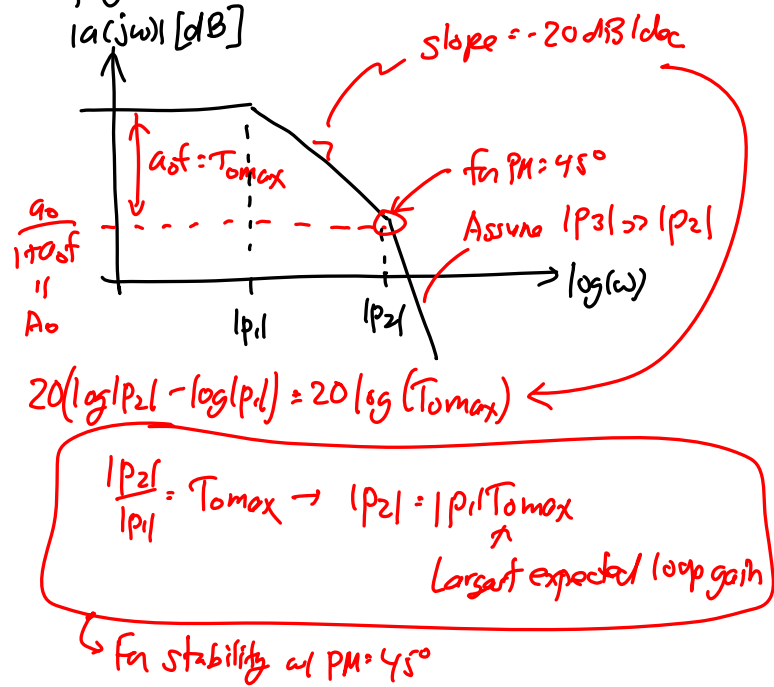 |a(jω)| [dB]
slope = -20 dB/dec
a₀f = T₀max
for PM = 45°
Assume |P3| >> |P2|
a₀
1+a₀f
=
A₀
log(ω)
|p₁|
|p₂|
20(log|p₂| - log|p₁|) = 20 log (T₀max)
|p₂|
|p₁|
= T₀max → |p₂| = |p₁|T₀max
Largest expected loop gain
For stability w/ PM = 45°